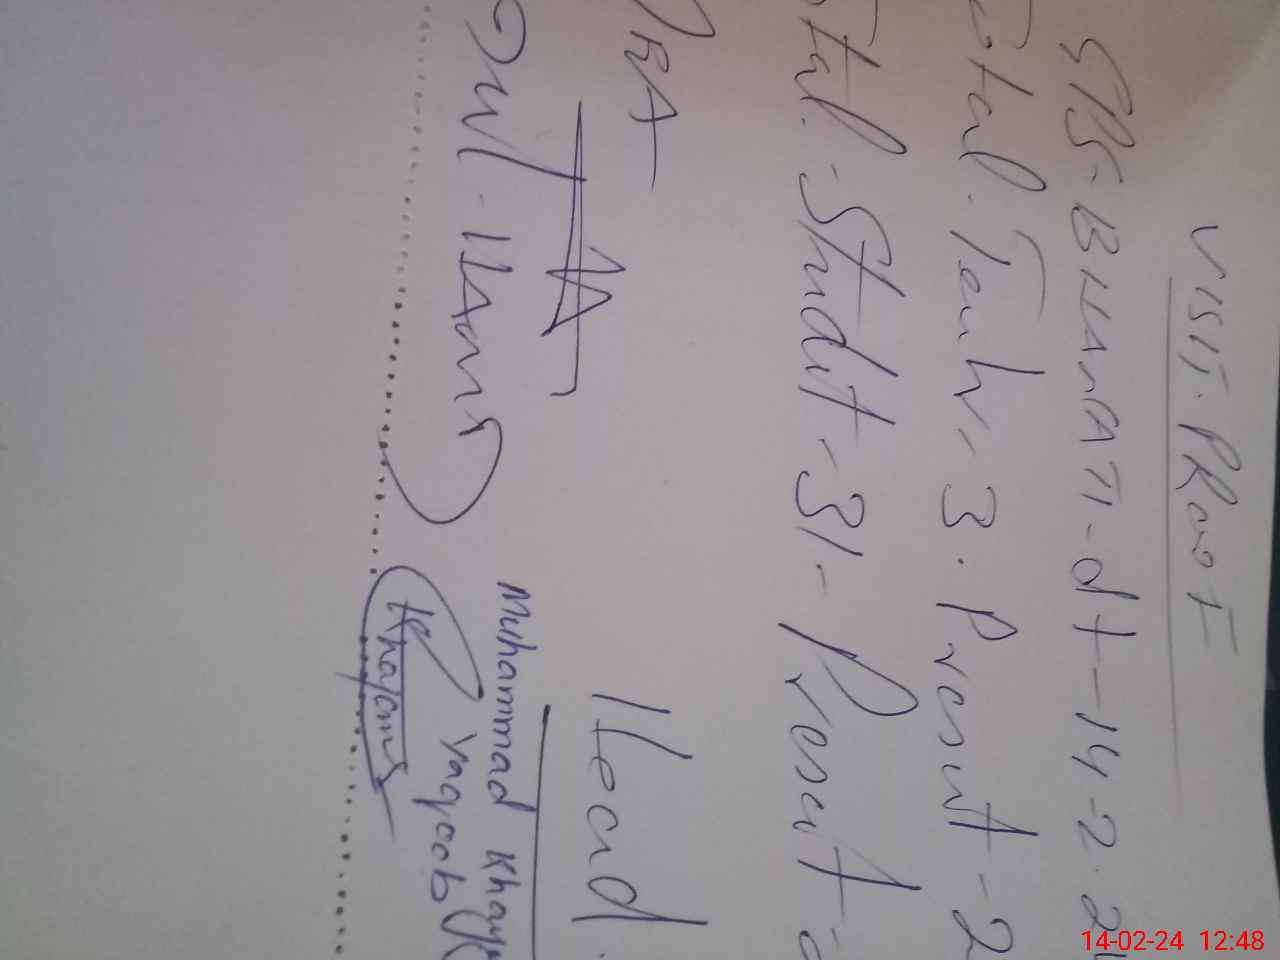 VISIT. PRooF
GPS-BHANATI-dt-14-2-24
Total. Teach-3. Present-2
Total.-Studt-31-Present-
DBA
Head.
Muhammad Khay
Yaqoob
Khayam
14-02-24 12:48